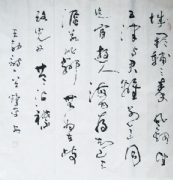 城闕輔三秦風烟望
五津與君離別意同
是宦遊人海内存知己
天涯若比鄰無為在歧
路兒女共沾巾
王勃詩